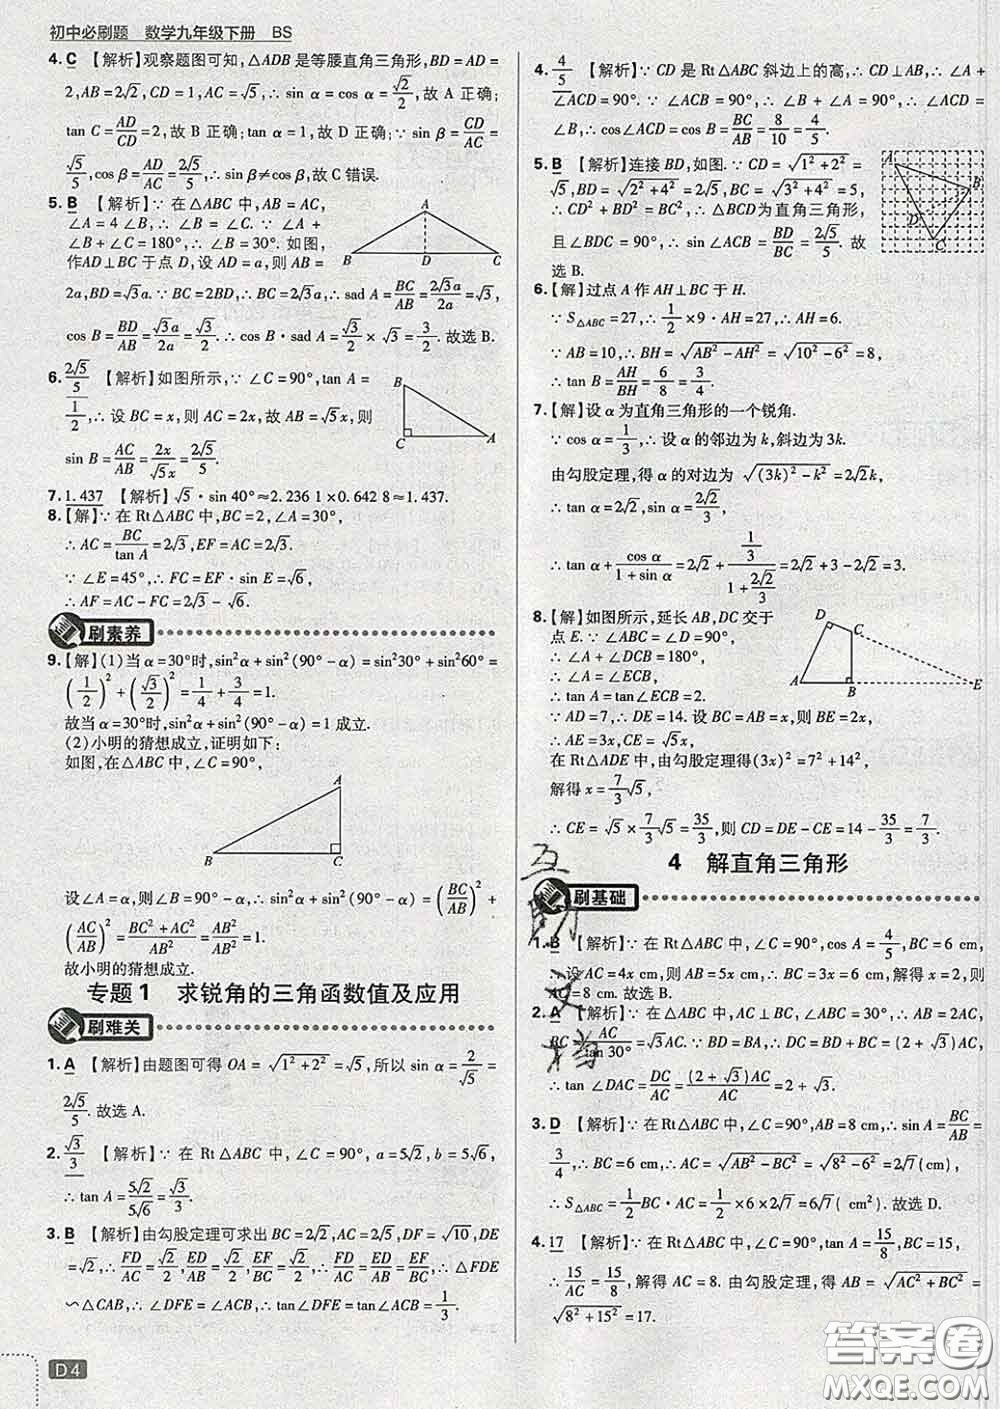 初中必刷题 数学九年级下册 BS
4. C 【解析】观察题图可知,△ADB是等腰直角三角形,BD=AD=
2,AB=2√2,CD=1,AC=√5,∴sin α=cos α=√2/2,故A正确;
tan C=AD/CD=2,故B正确;tan α=1,故D正确;∵sin β=CD/AC=
√5/5,cos β=AD/AC=2√5/5,∴sin β≠cos β,故C错误.
5. B 【解析】∵在△ABC中,AB=AC,
∠A=4∠B,∴∠B=∠C. ∵∠A+
∠B+∠C=180°,∴∠B=30°. 如图,
作AD⊥BC于点D,设AD=a,则AB=
2a,BD=√3a. ∵BC=2BD,∴BC=2√3a,∴sad A=BC/AB=2√3a/2a=√3,
cos B=BD/AB=√3a/2a=√3/2. ∴cos B·sad A=√3/2×√3=3/2. 故选B.
B D C A
6. 2√5/5 【解析】如图所示,∵∠C=90°,tan A=
1/2,∴设BC=x,则AC=2x,故AB=√5x,则
sin B=AC/AB=2x/√5x=2√5/5.
B C A
7. 1.437 【解析】√5·sin 40°≈2.236 1×0.642 8≈1.437.
8.【解】∵在Rt△ABC中,BC=2,∠A=30°,
∴AC=BC/tan A=2√3,EF=AC=2√3.
∵∠E=45°,∴FC=EF·sin E=√6,
∴AF=AC-FC=2√3-√6.
刷素养
9.【解】(1)当α=30°时,sin²α+sin²(90°-α)=sin²30°+sin²60°=
(1/2)²+(√3/2)²=1/4+3/4=1.
故当α=30°时,sin²α+sin²(90°-α)=1成立.
(2)小明的猜想成立,证明如下:
如图,在△ABC中,∠C=90°,
A B C
设∠A=α,则∠B=90°-α,∴sin²α+sin²(90°-α)=(BC/AB)²+
(AC/AB)²=BC²+AC²/AB²=AB²/AB²=1.
故小明的猜想成立.
专题1 求锐角的三角函数值及应用
刷难关
1. A 【解析】由题图可得OA=√1²+2²=√5,所以sin α=2/√5=
2√5/5. 故选A.
2. √3/3 【解析】∵在Rt△ABC中,∠C=90°,a=5√2,b=5√6,
∴tan A=5√2/5√6=√3/3.
3. B 【解析】由勾股定理可求出BC=2√2,AC=2√5,DF=√10,DE
=√2,∴FD/AC=√2/2,ED/AB=√2/2,EF/BC=√2/2,∴FD/AC=ED/AB=EF/BC,∴△FDE
∽△CAB,∴∠DFE=∠ACB,∴tan∠DFE=tan∠ACB=1/3.
D4
4. 4/5 【解析】∵CD是Rt△ABC斜边上的高,∴CD⊥AB,∴∠A+
∠ACD=90°. ∵∠ACB=90°,∴∠B+∠A=90°,∴∠ACD=
∠B,∴cos∠ACD=cos B=BC/AB=8/10=4/5.
5. B 【解析】连接BD,如图. ∵CD=√1²+2²=
√5,BD=√2²+4²=2√5,BC=√3²+4²=5,
∴CD²+BD²=BC²,∴△BCD为直角三角形,
且∠BDC=90°,∴sin∠ACB=BD/BC=2√5/5. 故
选B.
A B D C
6.【解】过点A作AH⊥BC于H.
∵S△ABC=27,∴1/2×9·AH=27,∴AH=6.
∵AB=10,∴BH=√AB²-AH²=√10²-6²=8,
∴tan B=AH/BH=6/8=3/4.
7.【解】设α为直角三角形的一个锐角.
∵cos α=1/3,∴设α的邻边为k,斜边为3k.
由勾股定理,得α的对边为√(3k)²-k²=2√2k,
∴tan α=2√2,sin α=2√2/3,
∴tan α+cos α/1+sin α=2√2+1/3/1+2√2/3=2√2+3-2√2=3.
8.【解】如图所示,延长AB,DC交于
点E. ∵∠ABC=∠D=90°,
∴∠A+∠DCB=180°,
∴∠A=∠ECB,
∴tan A=tan∠ECB=2.
∵AD=7,∴DE=14. 设BC=2x,则BE=2x·2=4x,
∴AE=3x,CE=√5x.
在Rt△ADE中,由勾股定理得(3x)²=7²+14²,
解得x=7/3√5,
∴CE=√5×7/3√5=35/3,则CD=DE-CE=14-35/3=7/3.
D C A B E
4 解直角三角形
刷基础
1. B 【解析】∵在Rt△ABC中,∠C=90°,cos A=4/5,BC=6 cm,
∴设AC=4x cm,则AB=5x cm,∴BC=3x cm,解得x=2,
∴AC=8 cm. 故选B.
2. A 【解析】∵在△ABC中,AC⊥BC,∠ABC=30°,∴AB=2AC,
BC=AC/tan 30°=√3AC. ∵BD=BA,∴DC=BD+BC=(2+√3)AC,
∴tan∠DAC=DC/AC=(2+√3)AC/AC=2+√3. 故选A.
3. D 【解析】∵在Rt△ABC中,∠C=90°,AB=8 cm,sin A=BC/AB=
3/4,∴BC=6 cm,∴AC=√AB²-BC²=√8²-6²=2√7(cm),
∴S△ABC=1/2BC·AC=1/2×6×2√7=6√7(cm²). 故选D.
4. 17 【解析】∵在Rt△ABC中,∠C=90°,tan A=15/8,BC=15,
∴15/AC=15/8,解得AC=8. 由勾股定理,得AB=√AC²+BC²=
√8²+15²=17.
答案圈
MXQE.COM